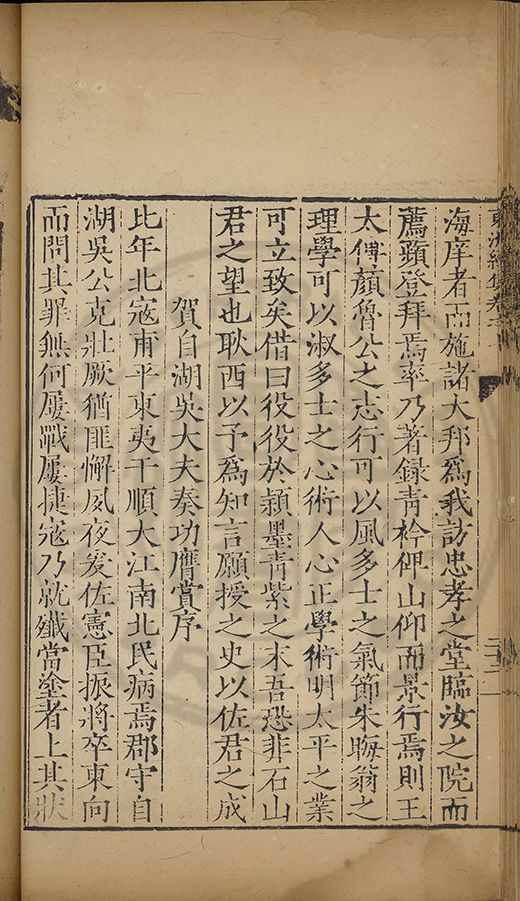 海庠者而施諸大邦為我訪忠孝之堂臨汝之院而
薦顥登拜焉率乃著録青衿俾山仰而景行焉則王
太傅顏魯公之志行可以風多士之氣節朱晦翁之
理學可以淑多士之心術人心正學術明太平之業
可立致矣借曰役役於穎墨青紫之末吾恐非石山
君之望也耿西以予為知言願授之史以佐君之成
賀自湖吳大夫奏功膺賞序
比年北寇甫平東夷干順大江南北民病焉郡守自
湖吳公克壯厥猶匪懈夙夜爰佐憲臣振將卒東向
而問其罪無何屢戰屢捷寇乃就殲當塗者上其狀